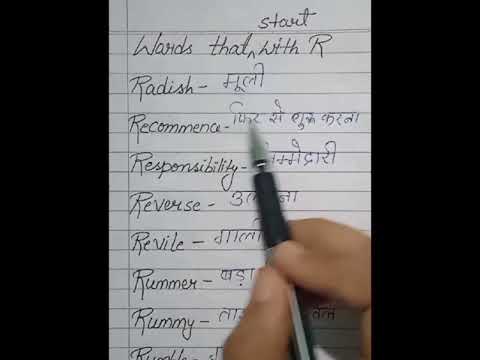 start
Words that with R
Radish - मूली
Recommence - फिर से शुरू करना
Responsibility -
Reverse -
Revile - गाली
Rummer -
Rummy -